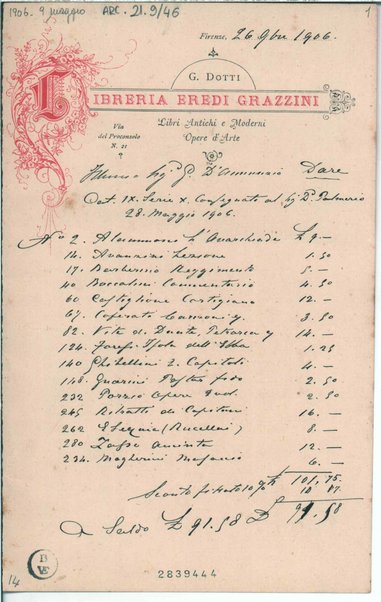 1906. 9 maggio ARC. 21.9/46 1
Firenze, 26 9bre 1906.
G. DOTTI
LIBRERIA EREDI GRAZZINI
Via del Proconsolo N. 21
Libri Antichi e Moderni
Opere d'Arte
G. D'Annunzio Dare
Cat. IX. Serie X. Consegnato al Sig P. Palmerio
28. Maggio 1906.
No 2. Alamanni L' L 9.—
14. Avanzino Lezione 1.50
17. Barberino Reggimento 5.—
40 Boccalini Commentario 4.50
60 Castiglione Cortigiano 12.—
67. Canzoni 3.50
82. Vite di Dante, Petrarca 14.—
124. Isola dell'Elba 1.25
140 Ghibellini 2. Capitoli 4.—
148. Guarini Pastor fido 2.50
232 Porzio Opere 2.50
245 Ritratti di Capitani 16.—
262 Esequie (Rucellai) 8.—
280 Tasso Aminta 12.—
234. Magherini Masaccio 6.—
L 101,75.
Sconto 10% 10 17.
A Saldo L 91.58 L 91.58
B VE
14
2839444